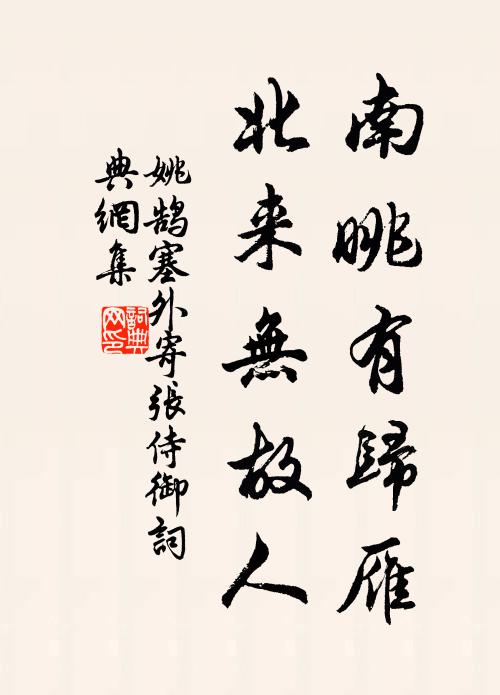 南眺有歸雁
北来無故人
姚鹄塞外寄張侍御詞
典網集
詞典
网印